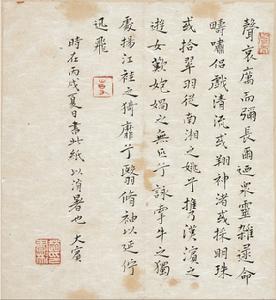 聲哀厲而彌長爾迺眾靈雜遝命
疇嘯侶戲清流或翔神渚或採明珠
或拾翠羽從南湘之姚兮攜漢濱之
遊女歎匏媧之無匹兮詠牽牛之獨
處揚輕袿之猗靡兮翳脩袖以延佇
迅飛
時在丙戌夏日書此紙以消暑也 大賓